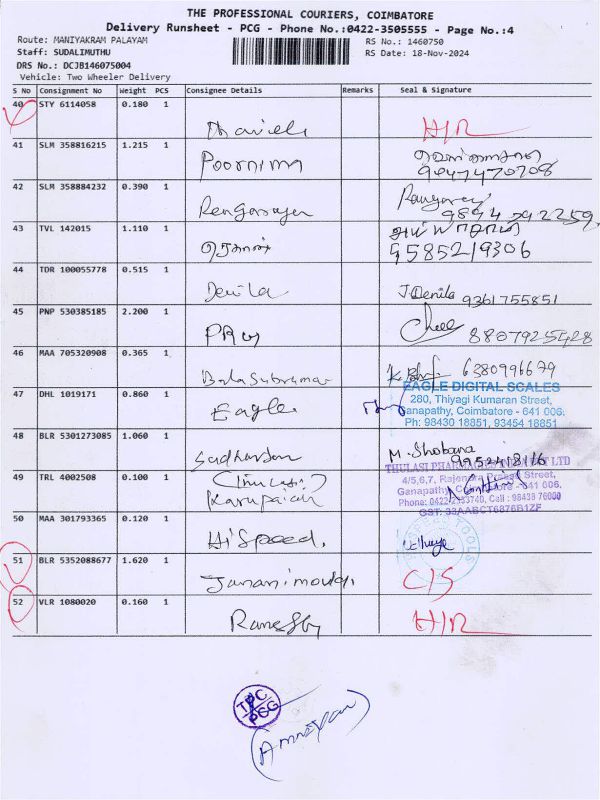 THE PROFESSIONAL COURIERS, COIMBATORE
Delivery Runsheet - PCG - Phone No.:0422-3505555 - Page No.:4
Route: MANIYAKRAM PALAYAM
RS No.: 1460750
Staff: SUDALIMUTHU
RS Date: 18-Nov-2024
DRS No.: DCJB146075004
Vehicle: Two Wheeler Delivery
S No Consignment No Weight PCS Consignee Details Remarks Seal & Signature
40 STY 6114058 0.180 1
H/R
41 SLM 358816215 1.215 1
Poornima
9047470708
42 SLM 358884232 0.390 1
Rengarajan
43 TVL 142015 1.110 1
9585219306
44 TDR 100055778 0.515 1
Devila J.Devila 9361755851
45 PNP 530385185 2.200 1
8807925428
46 MAA 705320908 0.365 1
6380996679
47 DHL 1019171 0.860 1
Eagle
EAGLE DIGITAL SCALES
280, Thiyagi Kumaran Street,
Ganapathy, Coimbatore - 641 006.
Ph: 98430 18851, 93454 18851
48 BLR 5301273085 1.060 1
M. Shobana
9952418116
49 TRL 4002508 0.100 1
Karupaiah
4/5,6,7, Rajendra Prasad Street,
Ganapathy, Coimbatore - 641 006.
GST: 33AABCT6876B1ZF
50 MAA 301793365 0.120 1
Hi Speed.
51 BLR 5352088677 1.620 1
C/S
52 VLR 1080020 0.160 1
H/R
TPC
PCG